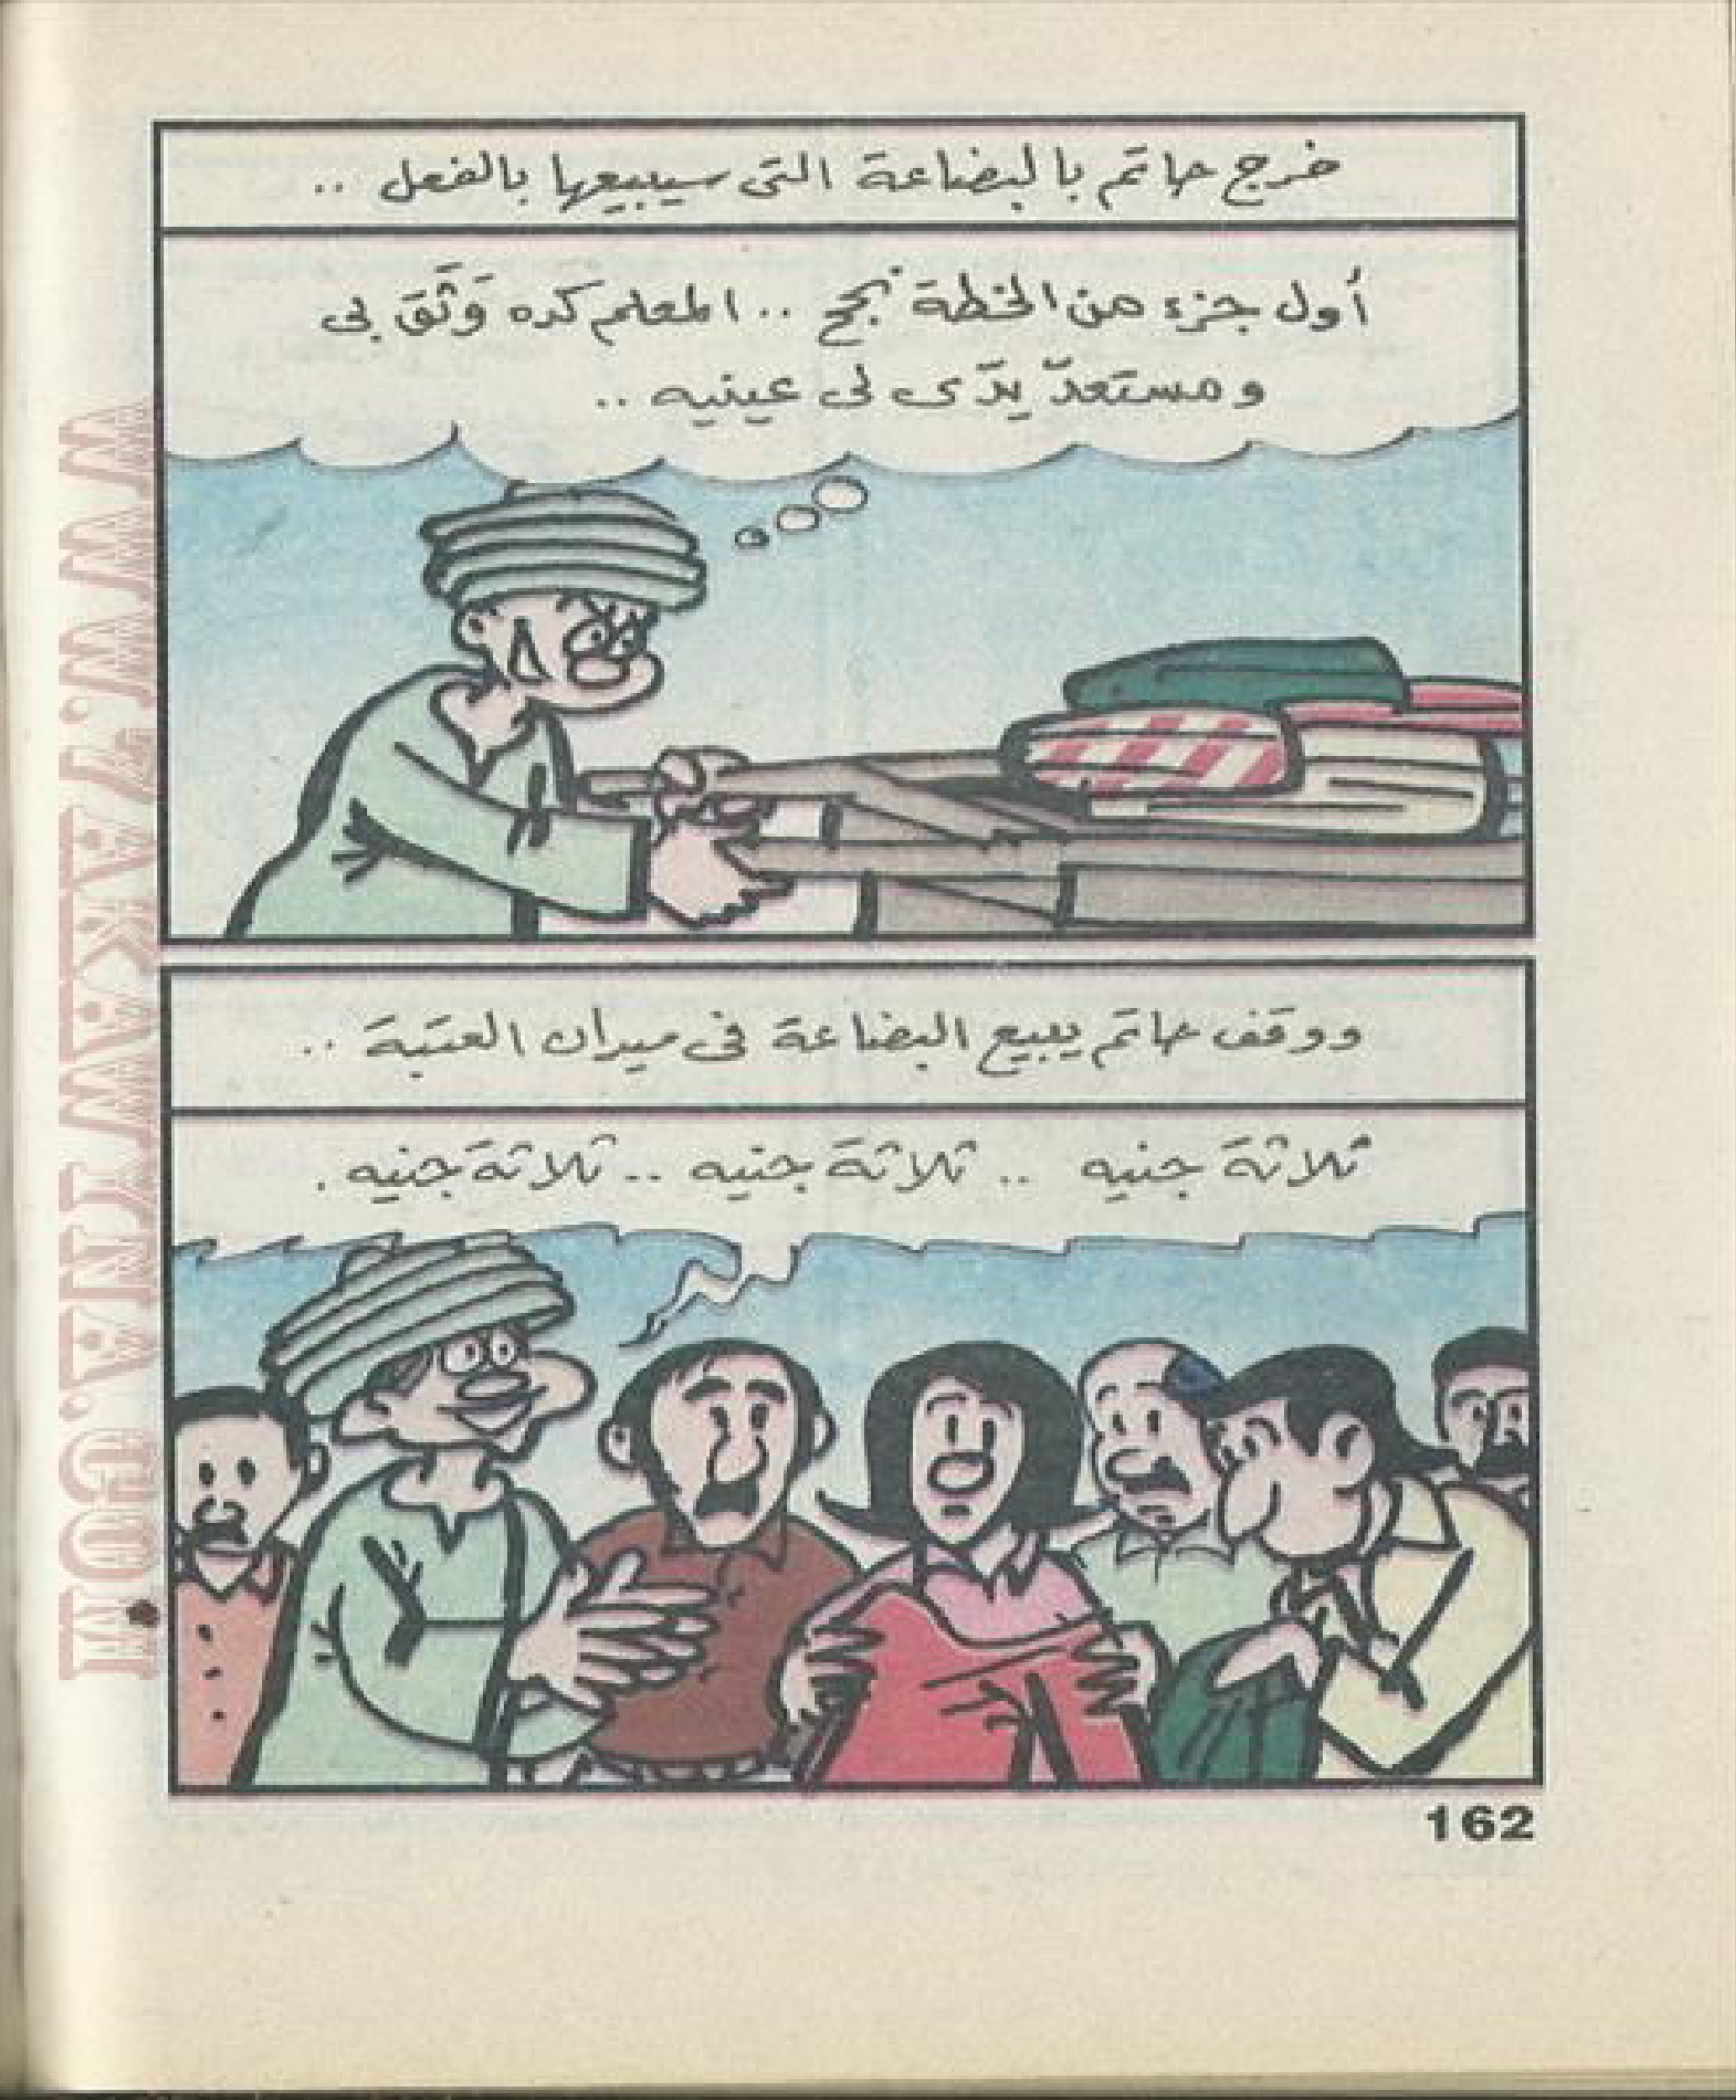 خرج حاتم بالبضاعة التى سيبيعها بالفعل ..
أول جزء من الخطة نجح .. المعلم كده وَثَقَ بى
ومستعدّ يدّى لى عينيه ..
ووقف حاتم يبيع البضاعة فى ميدان العتبة ..
ثلاثة جنيه .. ثلاثة جنيه .. ثلاثة جنيه .
162
WWW.7AKAWTNA.COM